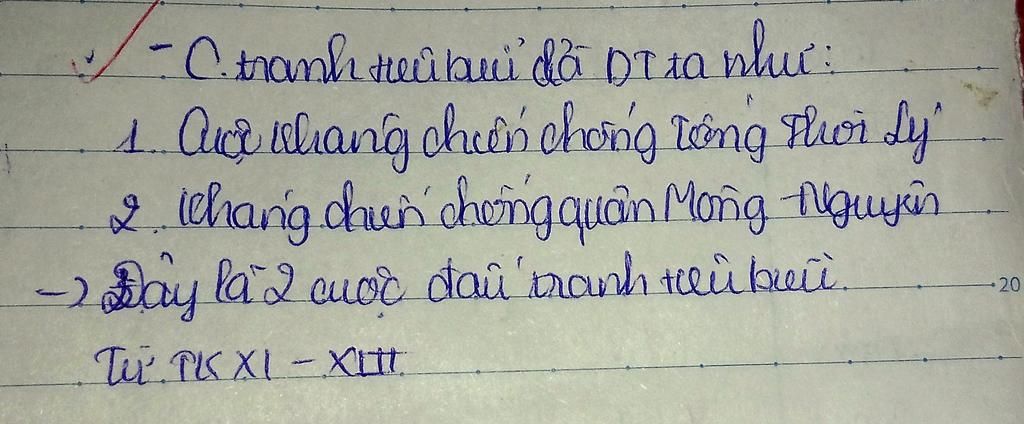 - C. tranh tiêu biểu của DT ta như:
1. Cuộc kháng chiến chống Tống Thời Lý
2. Kháng chiến chống quân Mông - Nguyên
-> Đây là 2 cuộc đấu tranh tiêu biểu.
Từ TK XI - XIII
20